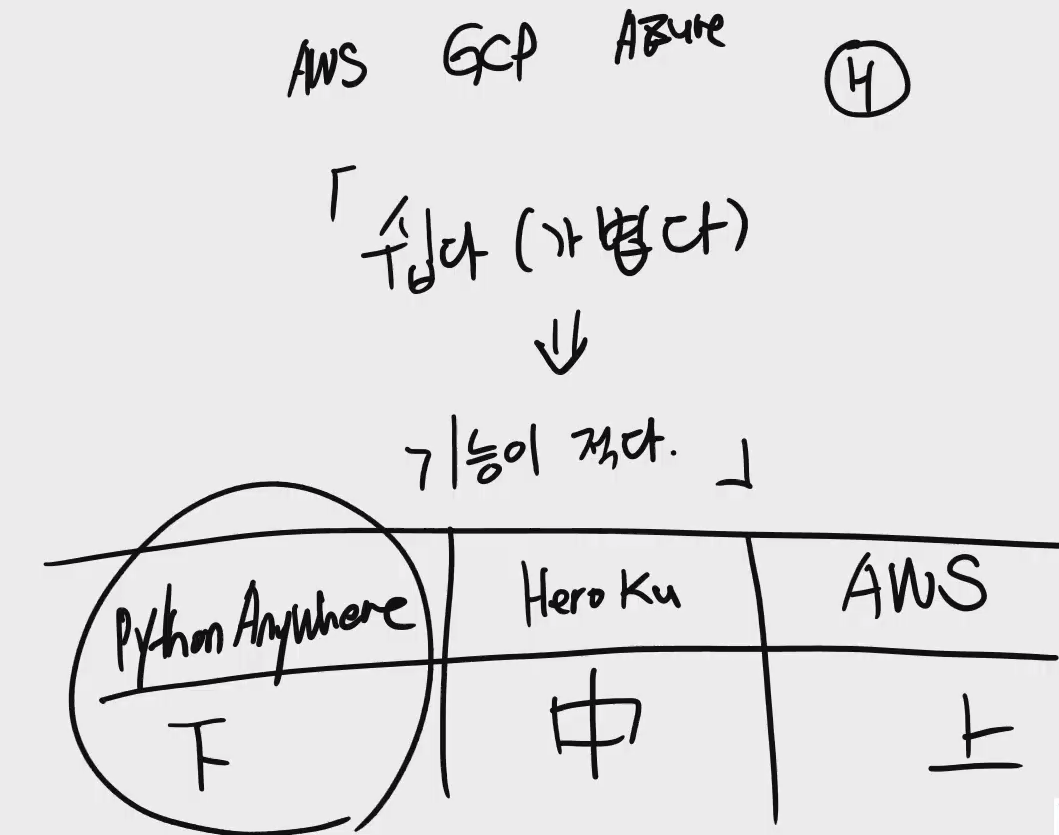 AWS GCP Azure
「쉽다 (가볍다)
⇓
기능이 적다.」
Python Anywhere Heroku AWS
下 中 上